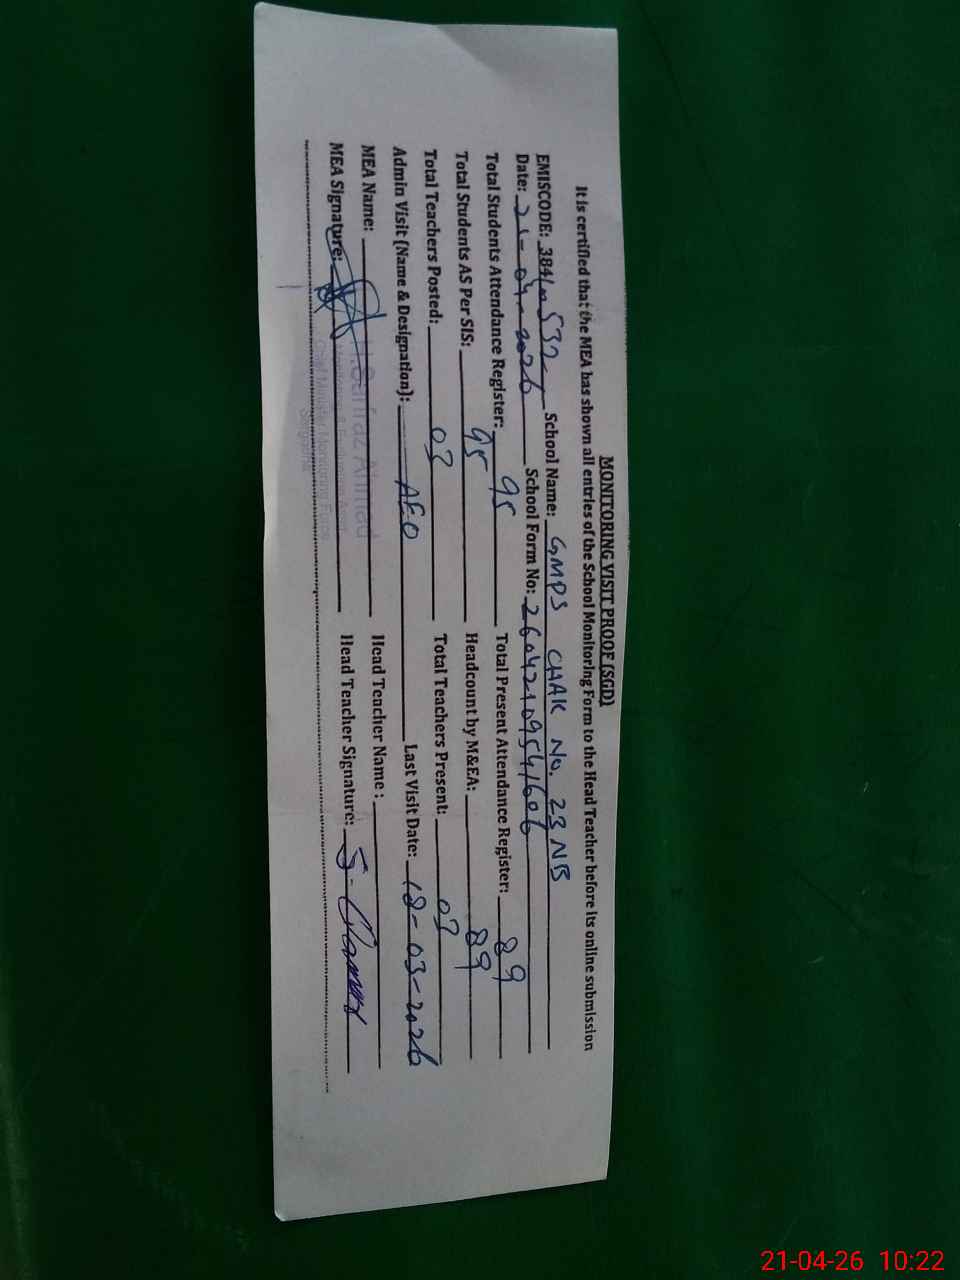 MONITORING VISIT PROOF (SGD)
It is certified that the MEA has shown all entries of the School Monitoring Form to the Head Teacher before its online submission
EMISCODE: 38410532 School Name: GMPS CHAK No. 23 NB
Date: 21-04-2026 School Form No: 26042109541606
Total Students Attendance Register: 95 Total Present Attendance Register: 89
Total Students AS Per SIS: 95 Headcount by M&EA: 89
Total Teachers Posted: 03 Total Teachers Present: 03
Admin Visit (Name & Designation): AEO Last Visit Date: 18-03-2026
MEA Name: Sarfraz Ahmad Head Teacher Name :
Monitoring & Evaluation Asstt.
MEA Signature: Head Teacher Signature:
Chief Minister Monitoring Force
Sargodha
21-04-26 10:22